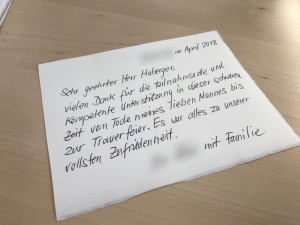 im April 2018
Sehr geehrter Herr Haberger,
vielen Dank für die teilnahmsvolle und
kompetente Unterstützung in dieser schweren
Zeit vom Tode meines lieben Mannes bis
zur Trauerfeier. Es war alles zu unserer
vollsten Zufriedenheit.
mit Familie